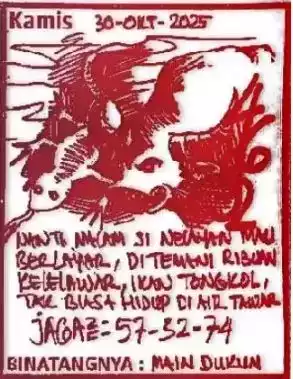 Kamis 30-OKT-2025
NANTI MALAM SI NELAYAN MAU
BERLAYAR, DITEMANI RIBUAN
KELELAWAR, IKAN TONGKOL,
TAK BIASA HIDUP DI AIR TAWAR
JAGAZ=57-32-74
BINATANGNYA : MAIN DUKUN